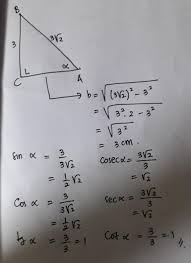 B
3
3√2
α
C
A
b = √((3√2)² - 3²)
= √(3².2 - 3²)
= √3²
= 3 cm.
sin α = 3/3√2
= 1/2 √2
cosec α = 3√2/3
= √2
Cos α = 3/3√2
= 1/2 √2
sec α = 3√2/3
= √2
tg α = 3/3 = 1
Cot α = 3/3 = 1